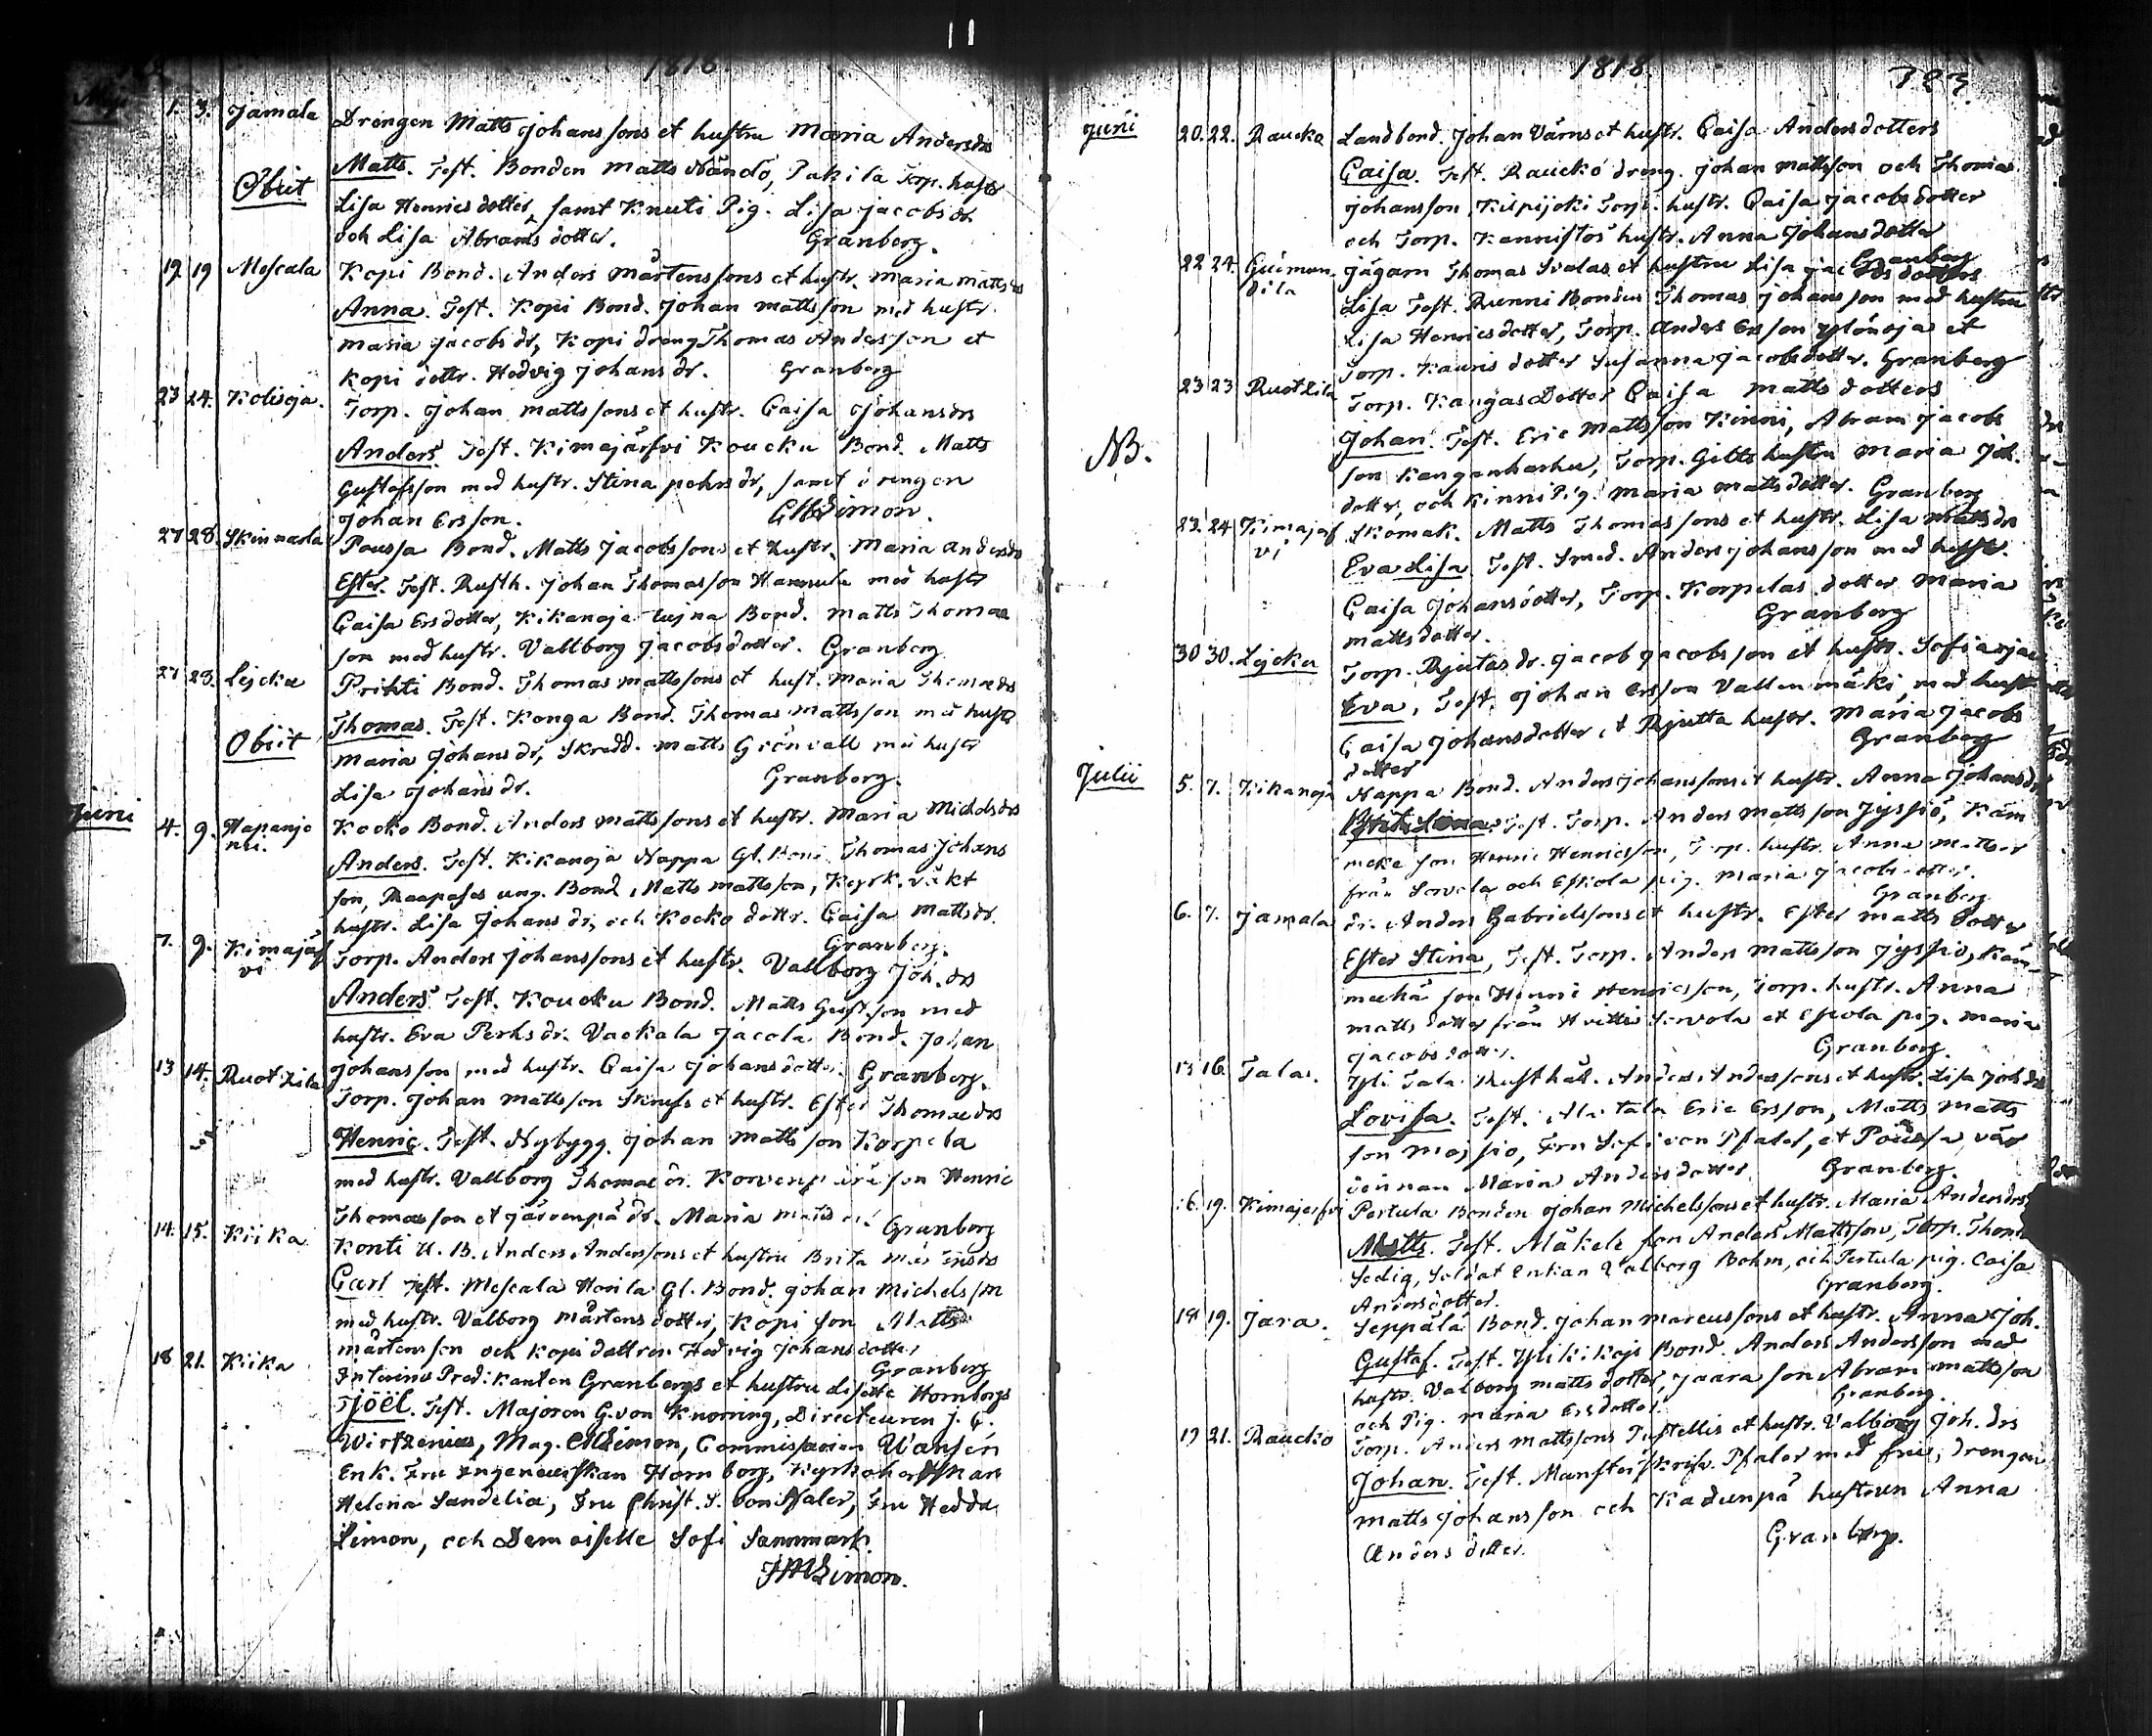 1818.
Maji
1. 3. Jamala Drengen Matts Johanssons et hustru Maria Andersdrs
Matts. Test. Bonden Matts Nändö, Pakila Torp. hustr
Obiit
Lisa Henricsdotter, samt Knuti Pig. Lisa Jacobsdr
och Lisa Abramsdotter. Granberg.
19 19 Mescala Kopi Bond. Anders Mårtenssons et hustr. Maria Mattsdrs
Anna. Test. Kopi Bond. Johan Mattsson med hustr.
Maria Jacobsdr, Kopi dreng Thomas Andersson et
Kopi dottr. Hedvig Johansdr. Granberg
23 24. Kolisoja. Torp. Johan Mattssons et hustr. Caisa Johansdrs
Anders. Test. Kimajärfvi Koucku Bond. Matts
Gustafsson med hustr. Stina pehrsdr, samt drengen
Johan Ersson. Limon.
27 28. Skinnarla Poussa Bond. Matts Jacobssons et hustr. Maria Andersdrs
Ester. Test. Rusth. Johan Thomasson Hannula med hustr
Caisa Ersdotter, Kikanoja Bond. Matts Thomae
son med hustr. Vallborg Jacobsdotter. Granberg
27 28. Lejcku Prihti Bond. Thomas Mattssons et hust. Maria Thomædrs
Thomas. Test. Konga Bond. Thomas Mattsson med hustr
Obiit
Maria Johansdr, Skredd. Matts Grönvall med hustr
Lisa Johansdr. Granberg.
Juni
4. 9. Hapanje Kocko Bond. Anders Mattssons et hustr. Maria Michelsdrs
mi.
Anders. Test. Kikanoja Nappa Gl. Bond Thomas Johans
son, Raapases ung. Bond. Matts Mattsson, Kyrk. väkt
hustr. Lisa Johansdr, och Kocko dottr. Caisa Mattsdr.
Granberg.
7. 9. Kimajäf Torp. Anders Johanssons et hustr. Vallborg Joh. drs
vi
Anders. Test. Koucku Bond. Matts Gust.son med
hustr. Eva Perhsdr. Vackala Jacola Bond. Johan
Johansson med hustr. Caisa Johansdotter. Granberg.
13 14. Ruotzila Torp. Johan Mattsson et hustr. Ester Thomædrs
Henric. Test. Nybygg. Johan Mattsson Korpela
med hustr. Vallborg Thomae dr. Korvenpää son Henric
Thomasson et Järvenpä dr. Maria Matts dr Granberg
14. 15. Kiika Konti U. B. Anders Anderssons et hustru Brita Mårtensdrs
Carl Test. Mescala Honila Gl. Bond. Johan Michelsson
med hustr. Valborg Mårtensdotter, Kopi son Matts
Mårtensson och Kopi dottren Hedvig Johansdotter
Granberg
18 21. Kiika Interims Predikanten Granbergs et hustru Lisette Hornborgs
Joël. Test. Majoren G. von Knorring, Directeuren J. G.
Wirtzenius, Mag. Limon, Commissarien Wansén
Enk. Fru Ingenieurskan Hornborg, Kyrkoherdskan
Helena Sandelia, Fru Christ. S. von Pfaler, Fru Hedda
Limon, och Demoiselle Sofi Sannmark.
Limon.
1818
Junii
20. 22. Raucko Landbond. Johan Värns et hustr. Caisa Andersdotters
Caisa. Test. Raucko dreng. Johan Mattsson och Thomas
Johansson, Kiipijoki Torp. hustr. Caisa Jacobsdotter
och Torp. Kannistos hustr. Anna Johansdotter
Granberg
22 24. Gunnars Jägarn Thomas Svalas et hustru Lisa Jacobsdotters
dila
Lisa Test. Runni Bonden Thomas Johansson med hustru
Lisa Henricsdotter, Torp. Anders Ersson Ylönoja et
Torp. Kauris dotter Susanna Jacobsdotter. Granberg
23 23 Ruotzila Torp. Kangas Dotter Caisa Matts dotters
NB.
Johan. Test. Eric Mattsson Kinni, Abram Jacobs
son Kangenharhu, Torp. Gitts hustru Maria Joh.
dotter, och Kinni Pig. Maria Mattsdotter. Granberg
23. 24 Kimajaf Skomak. Matts Thomassons et hustr. Lisa Mattsdrs
vi
Eva Lisa Test. Smed. Anders Johansson med hustr.
Caisa Johansdotter, Torp. Korpelas dotter Maria
Mattsdotter. Granberg
30 30. Lejcku Torp. Rjutas dr. Jacob Jacobsson et hustr. Sofia
Eva, Test. Johan Ersson Vallenmäki, med hustr
Caisa Johansdotter, et Rjutta hustr. Maria Jacobs
dotter Granberg
Julii
5. 7. Kikanoja Nappa Bond. Anders Johanssons et hustr. Anna Johansdrs
Test. Torp. Anders Mattsson Jyssiö, Käm
mekä son Henric Henricsson, Torp. hustr. Anna Mattsdr
från Servola och Eskola pig. Maria Jacobsdotter.
Granberg
6. 7. Jamala dr. Anders Gabrielssons et hustr. Ester Matts dotter
Ester Stina, Test. Torp. Anders Mattsson Jyssiö, Käm-
mekä son Henric Henricsson, Torp. hustr. Anna
Matts dotter från Hvitto Servola et Eskola pig. Maria
Jacobsdotter. Granberg.
13 16. Tala. Yli Tala Rusthåll. Anders Anderssons et hustr. Lisa Joh drs
Lovisa. Test. Ala tala Eric Ersson, Matts Matts
son Majsio, Fru Sofi von Pfaler, et Poussa vär
dinnan Maria Andersdotter. Granberg.
16. 19. Kimajerfvi Pertula Bonden Johan Michelssons et hustr. Maria Andersdrs
Matts. Test. Mäkele son Anders Mattsson, Torp. Thom
Sedig, Soldat Enkan Valborg Bohm, och Pertula pig. Caisa
Andersdotter. Granberg.
18 19. Jara. Seppälä Bond. Johan Marcussons et hustr. Anna Joh.
Gustaf. Test. Yli Kikoja Bond. Anders Andersson med
hustr. Valborg Mattsdotter, Jaara son Abram Mattsson
och Pig. Maria Ersdotter. Granberg.
19 21. Raucko Torp. Anders Mattssons Pustellis et hustr. Valborg Joh. drs
Johan. Test. Mönsterskrifv. Pfaler med fru, drengen
Matts Johansson och Kadunpä hustrun Anna
Andersdotter. Granberg.